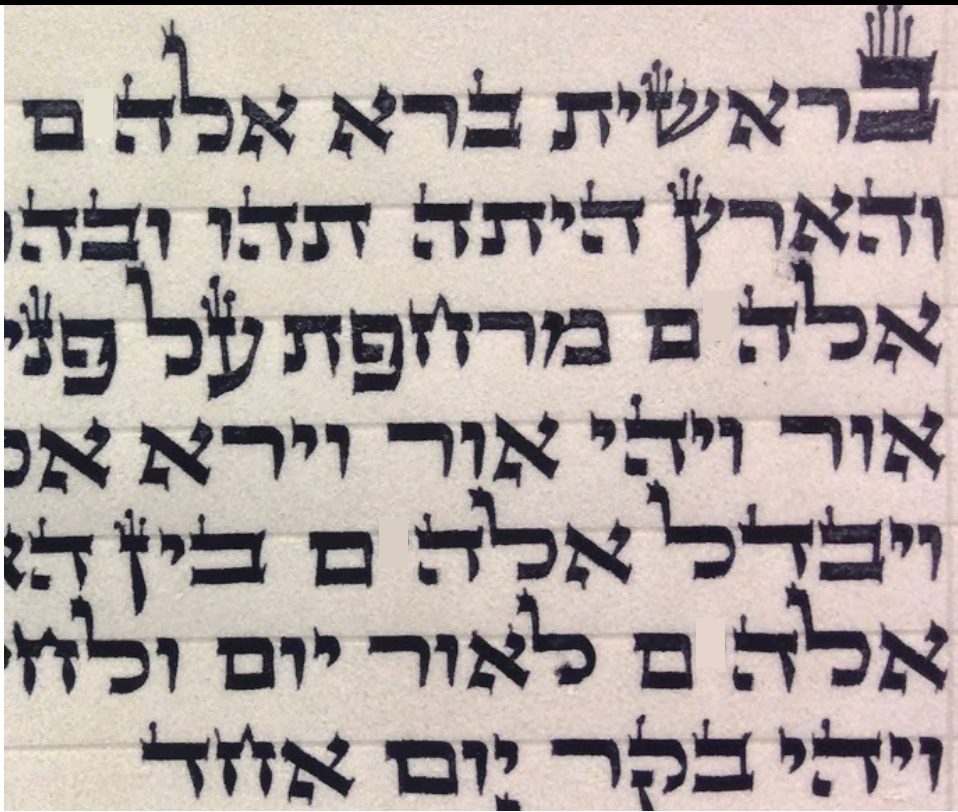 בראשית ברא אלה ם
והארץ היתה תהו ובהו
אלה ם מרחפת על פני
אור ויהי אור וירא
ויבדל אלה ם בין
אלה ם לאור יום
ויהי בקר יום אחד